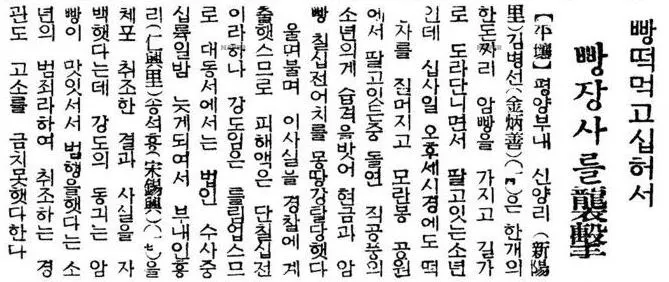 빵떡먹고십허서
빵장사를襲擊
【平壤】평양부내 신양리 (新陽
里)김병선(金炳善)(一一)은 한개의
한돈짜리 암빵을 가지고 길가
로 도라단니면서 팔고잇는소년
인데 십사일 오후세시경에도 떡
차를 질머지고 모란봉 공원
에서 팔고잇는중 돌연 직공풍의
소년의게 습격을밧어 현금과 암
빵 칠십전어치를 몽땅강탈당햇다
울며불며 이사실을 경찰에 게
출햇스므로 피해액은 단칠십전
이라하나 강도임은 틀림업스므
로 대동서에서는 범인 수사중
십륙일밤 늣게되여서 부내인흥
리(仁興里)송석흥(宋錫興)(一七)을
체포 취조한 결과 사실을 자
백햇다는데 강도의 동긔는 암
빵이 맛잇서서 범행을햇다는 소
년의 범죄라하여 취조하는 경
관도 고소를 금치못햇다한다